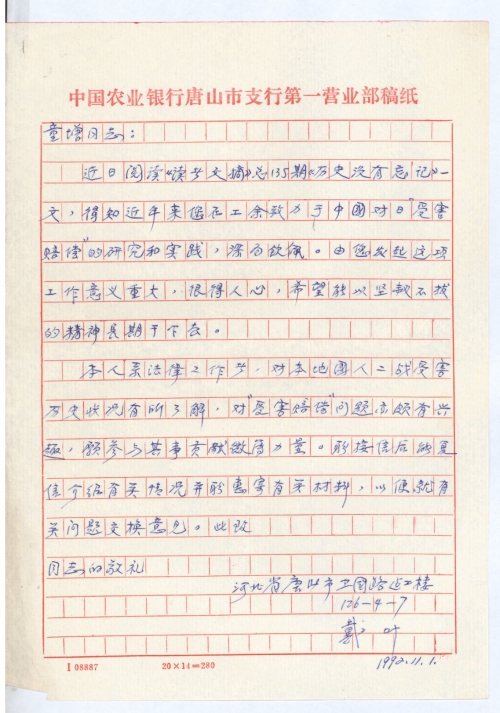 中国农业银行唐山市支行第一营业部稿纸
童增同志：
近日阅读《读者文摘》总135期《历史没有忘记》一
文，得知近年来您在工余致力于中国对日"受害
赔偿"的研究和实践，深为钦佩。由您发起这项
工作意义重大，很得人心，希望能以坚韧不拔
的精神长期干下去。
本人系法律工作者，对本地国人二战受害
历史状况有所了解，对"受害赔偿"问题亦颇有兴
趣，愿参与其事贡献微薄力量。盼接信后能复
信介绍有关情况并盼惠寄有关材料，以便就有
关问题交换意见。此致
同志的敬礼
河北省唐山市卫国路
126-4-7
戴叶
1992.11.1.
I 08887
20×14=280